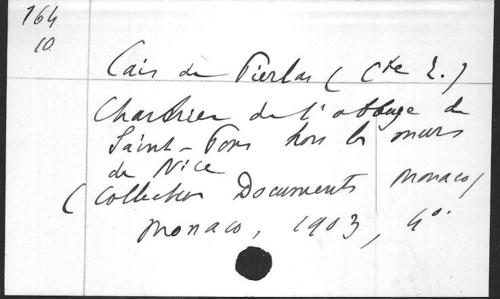 164
10
Cais de Pierlas (Cte E.)
Chartrier de l'abbaye de
Saint-Pons hors les murs
de Nice
(Collection Documents Monaco)
Monaco, 1903, 4°.